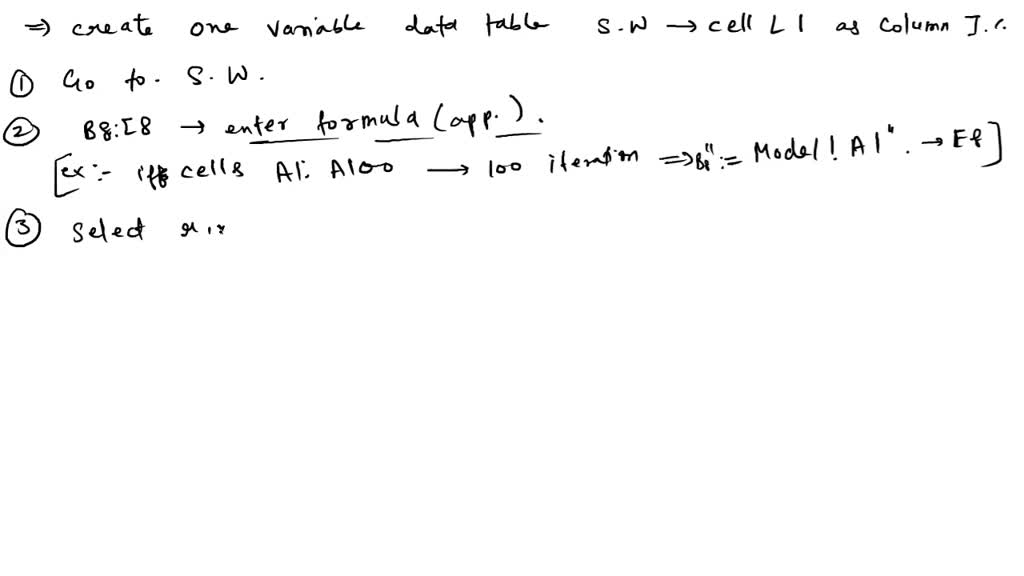 ⇒ create one variable data table S.W → cell L1 as column I.C
① Go to. S.W.
② B8:E8 → enter formula (app.).
[ex:- iff cells A1: A100 → 100 iteration ⇒ B8":= Model! A1". → E8]
③ Select